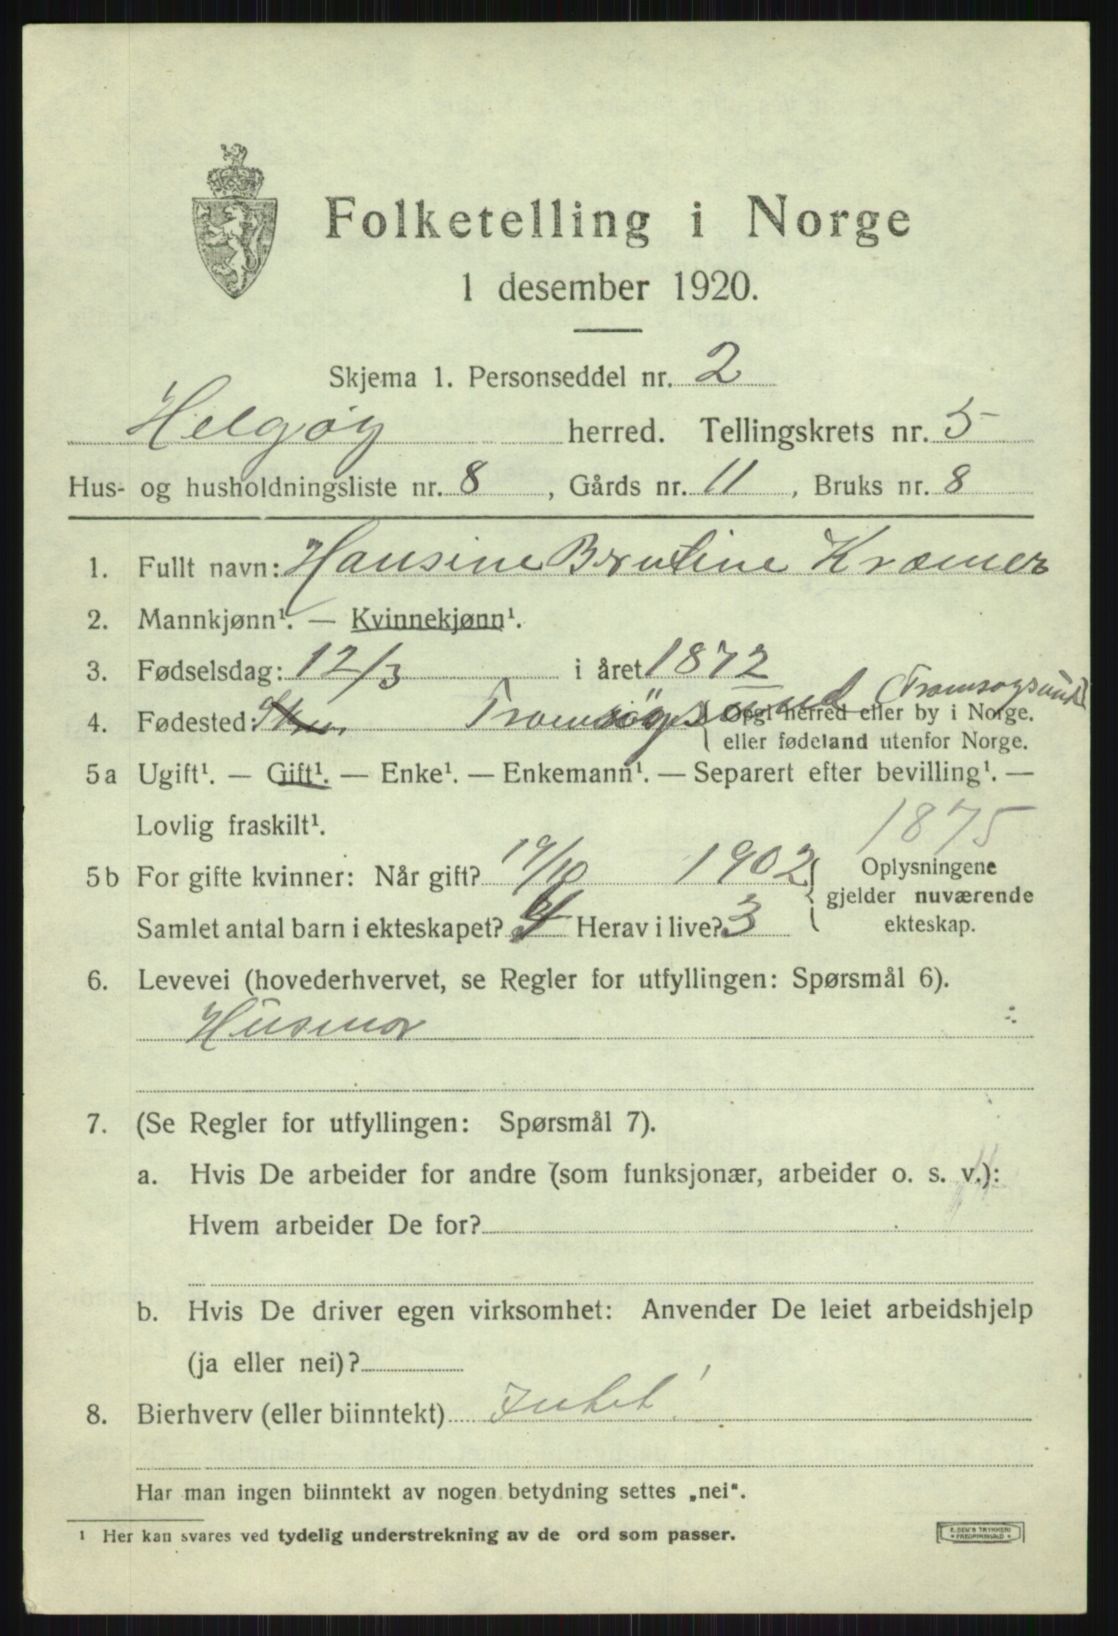 Folketelling i Norge
1 desember 1920.
Skjema 1. Personseddel nr. 2
Helgøy herred. Tellingskrets nr. 5
Hus- og husholdningsliste nr. 8, Gårds nr. 11, Bruks nr. 8
1. Fullt navn: Hansine Brutine Kræmer
2. Mannkjønn¹. — Kvinnekjønn¹.
3. Fødselsdag: 12/3 i året 1872
4. Fødested: Tromsöysund (Tromsøysund)
Opgi herred eller by i Norge.
eller fødeland utenfor Norge.
5a Ugift¹. — Gift¹. — Enke¹. — Enkemann¹. — Separert efter bevilling¹. —
Lovlig fraskilt¹.
1875
5b For gifte kvinner: Når gift? 19/10 1902
Samlet antal barn i ekteskapet? 4 Herav i live? 3
Oplysningene
gjelder nuværende
ekteskap.
6. Levevei (hovederhvervet, se Regler for utfyllingen: Spørsmål 6).
Hüsmor
7. (Se Regler for utfyllingen: Spørsmål 7).
a. Hvis De arbeider for andre (som funksjonær, arbeider o. s. v.):
Hvem arbeider De for?
b. Hvis De driver egen virksomhet: Anvender De leiet arbeidshjelp
(ja eller nei)?
8. Bierhverv (eller biinntekt) Intet!
Har man ingen biinntekt av nogen betydning settes „nei“.
¹ Her kan svares ved tydelig understrekning av de ord som passer.